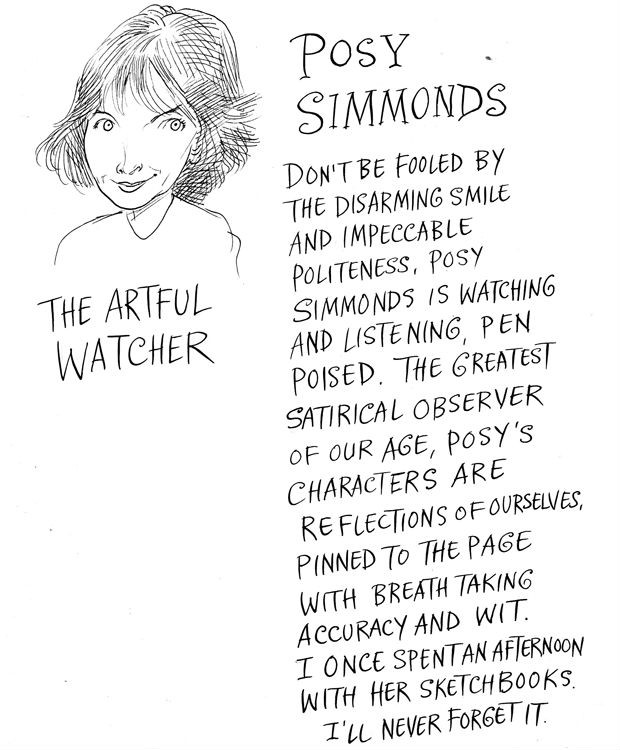 POSY
SIMMONDS
DON'T BE FOOLED BY
THE DISARMING SMILE
AND IMPECCABLE
POLITENESS. POSY
SIMMONDS IS WATCHING
AND LISTENING, PEN
POISED. THE GREATEST
SATIRICAL OBSERVER
OF OUR AGE, POSY'S
CHARACTERS ARE
REFLECTIONS OF OURSELVES,
PINNED TO THE PAGE
WITH BREATH TAKING
ACCURACY AND WIT.
I ONCE SPENT AN AFTERNOON
WITH HER SKETCHBOOKS.
I'LL NEVER FORGET IT.
THE ARTFUL
WATCHER